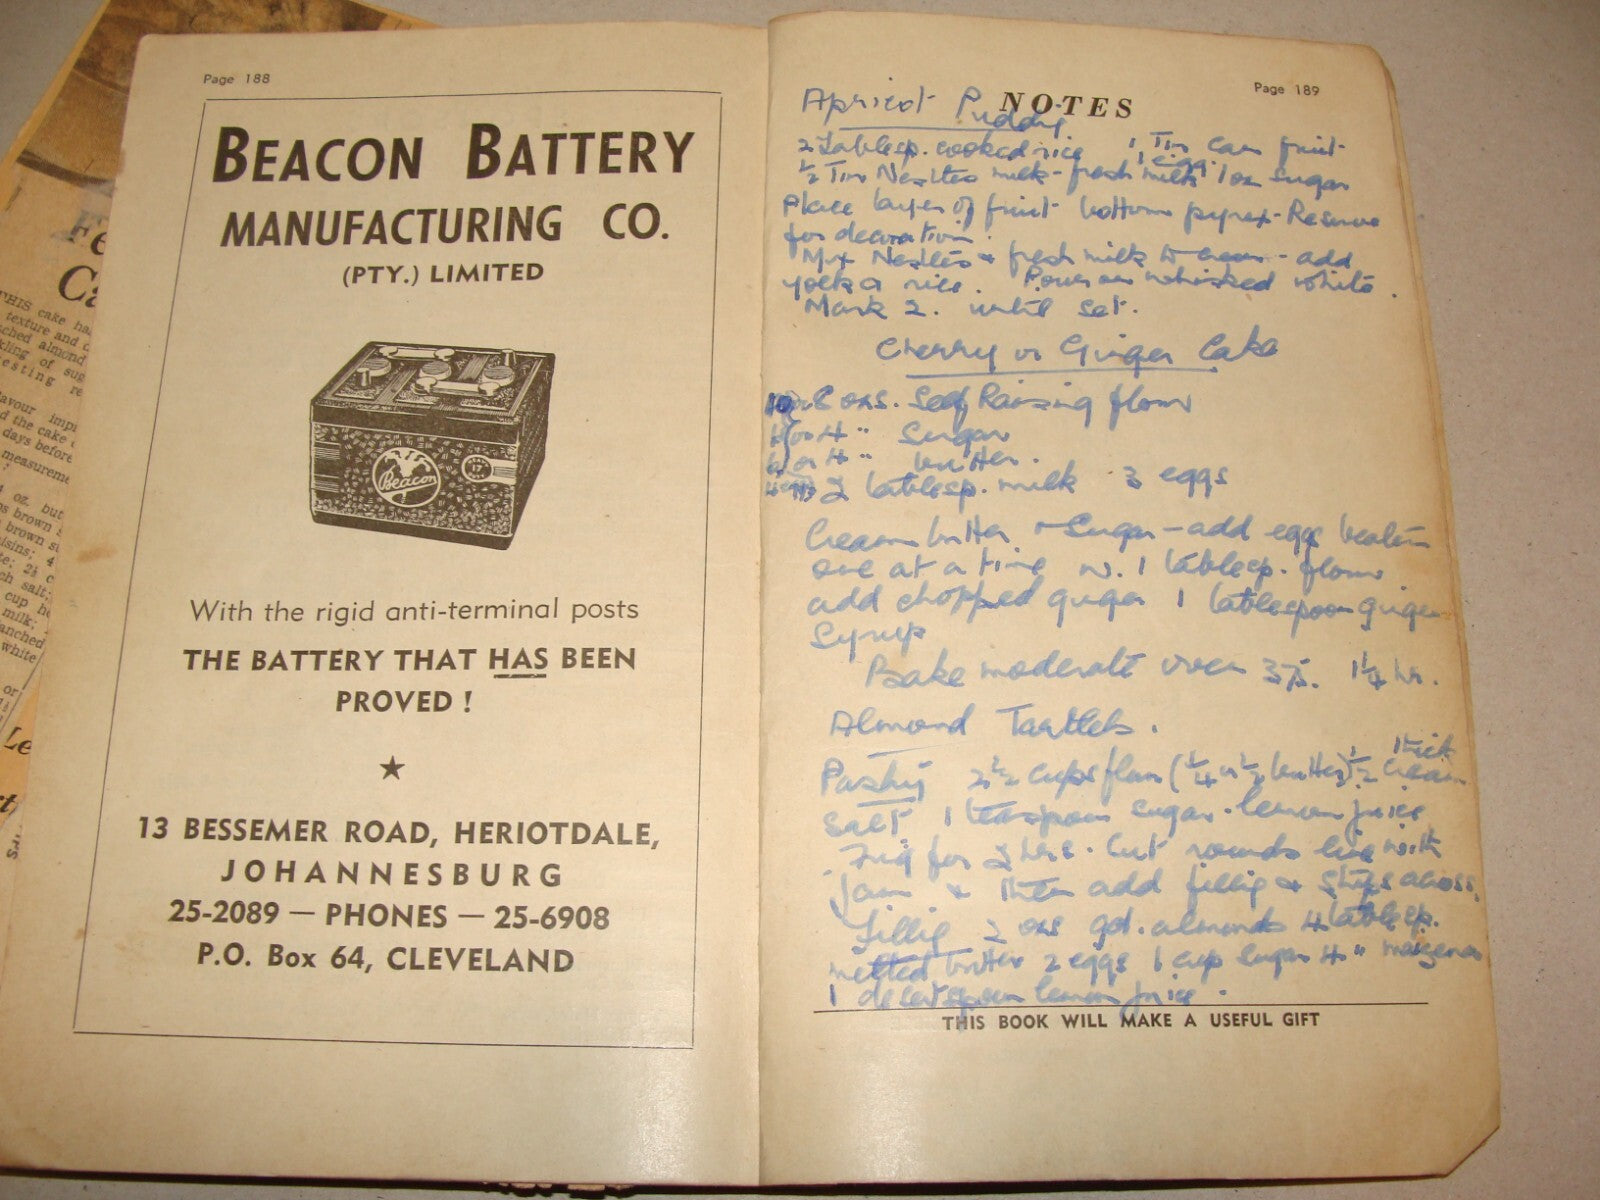 Page 188
BEACON BATTERY
MANUFACTURING CO.
(PTY.) LIMITED
Beacon
17
With the rigid anti-terminal posts
THE BATTERY THAT HAS BEEN
PROVED !
★
13 BESSEMER ROAD, HERIOTDALE,
JOHANNESBURG
25-2089 — PHONES — 25-6908
P.O. Box 64, CLEVELAND
Page 189
NOTES
Apricot Pudding
2 tablesp. cooked rice 1 Tin can fruit
1 egg.
½ Tin Nestles milk - fresh milk 1 oz sugar
Place layer of fruit bottom pyrex - Reserve
for decoration.
Mix Nestles & fresh milk to cream - add
yolk & rice. Pour on whisked white.
Mark 2. until set.
Cherry or Ginger Cake
10 or 8 ozs. Self Raising flour
or 4 " Sugar
6 or 4 " butter.
2 tablesp. milk 3 eggs
Cream butter & Sugar - add eggs beaten
one at a time w. 1 tablesp. flour.
add chopped ginger 1 tablespoon ginger
Syrup
Bake moderate oven 375. 1¼ hr.
Almond Tartlets.
Pastry 2½ cups flour (¼ w ½ butter) ½ thick cream
Salt 1 teaspoon sugar. lemon juice
Frig for 2 hrs. Cut rounds line with
jam & then add fillig & strips across.
Fillig 2 ozs gd. almonds 4 tablesp.
melted butter 2 eggs 1 cup sugar 4 " maizena
1 desertspoon lemon juice.
THIS BOOK WILL MAKE A USEFUL GIFT
THIS cake
texture and
almond
of
days before
measurements
brown
salt;
cup
milk;
white
or